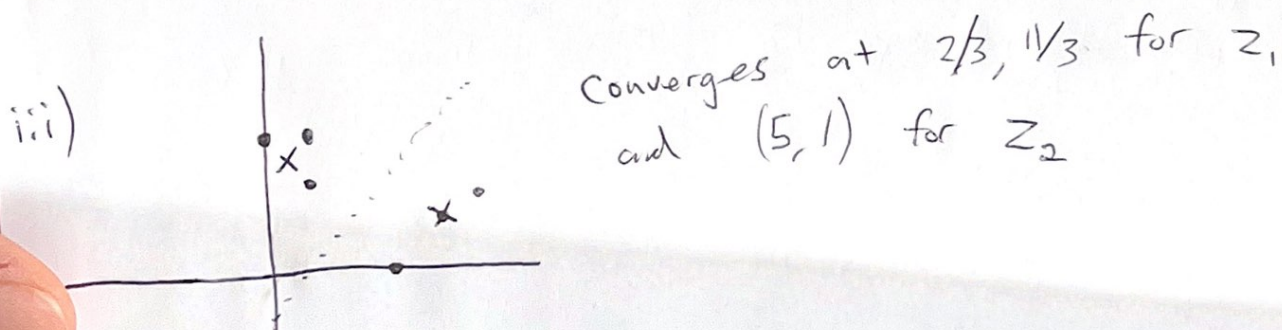 iii)
Converges at 2/3, 11/3 for z₁
and (5, 1) for z₂
x
x